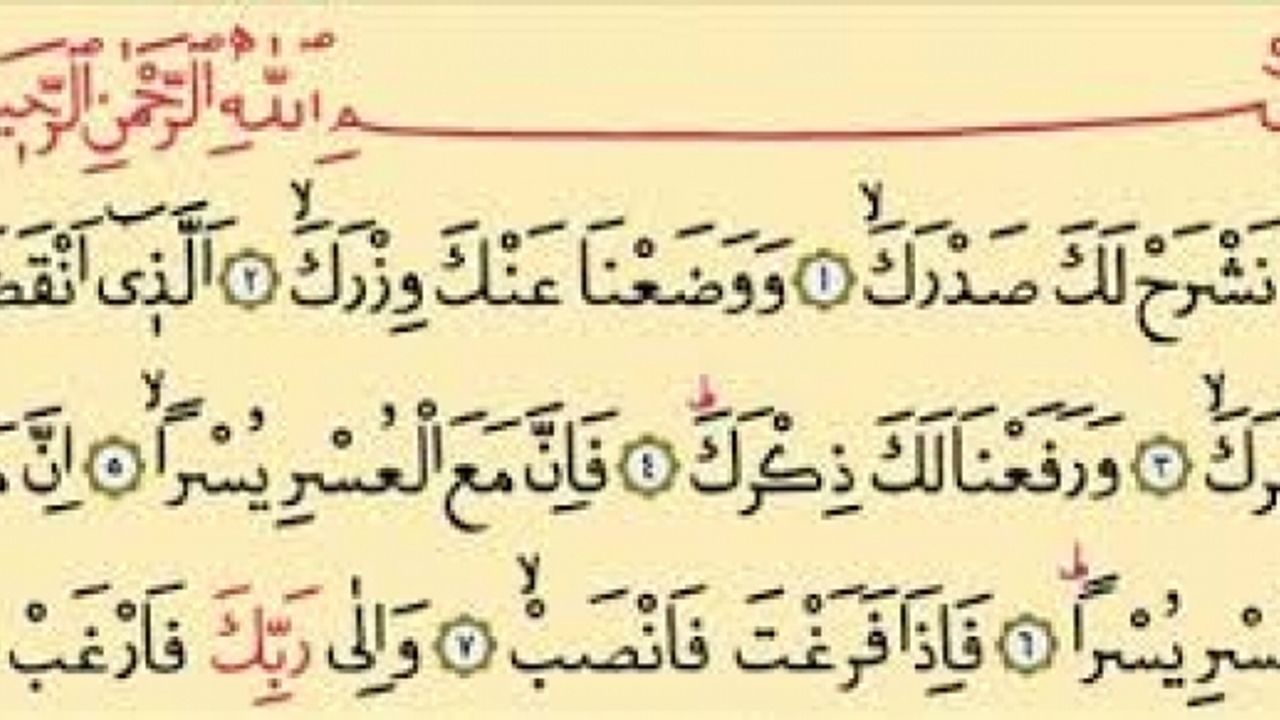 اللّٰهِ الرَّحْمٰنِ
نَشْرَحْ لَكَ صَدْرَكَۙ ﴿١﴾ وَوَضَعْنَا عَنْكَ وِزْرَكَۙ ﴿٢﴾ اَلَّذ۪ٓي
وَرَفَعْنَا لَكَ ذِكْرَكَۜ ﴿٤﴾ فَاِنَّ مَعَ الْعُسْرِ يُسْراًۙ ﴿٥﴾ اِنَّ
يُسْراًۜ ﴿٦﴾ فَاِذَا فَرَغْتَ فَانْصَبْۙ ﴿٧﴾ وَاِلٰى رَبِّكَ فَارْغَبْ